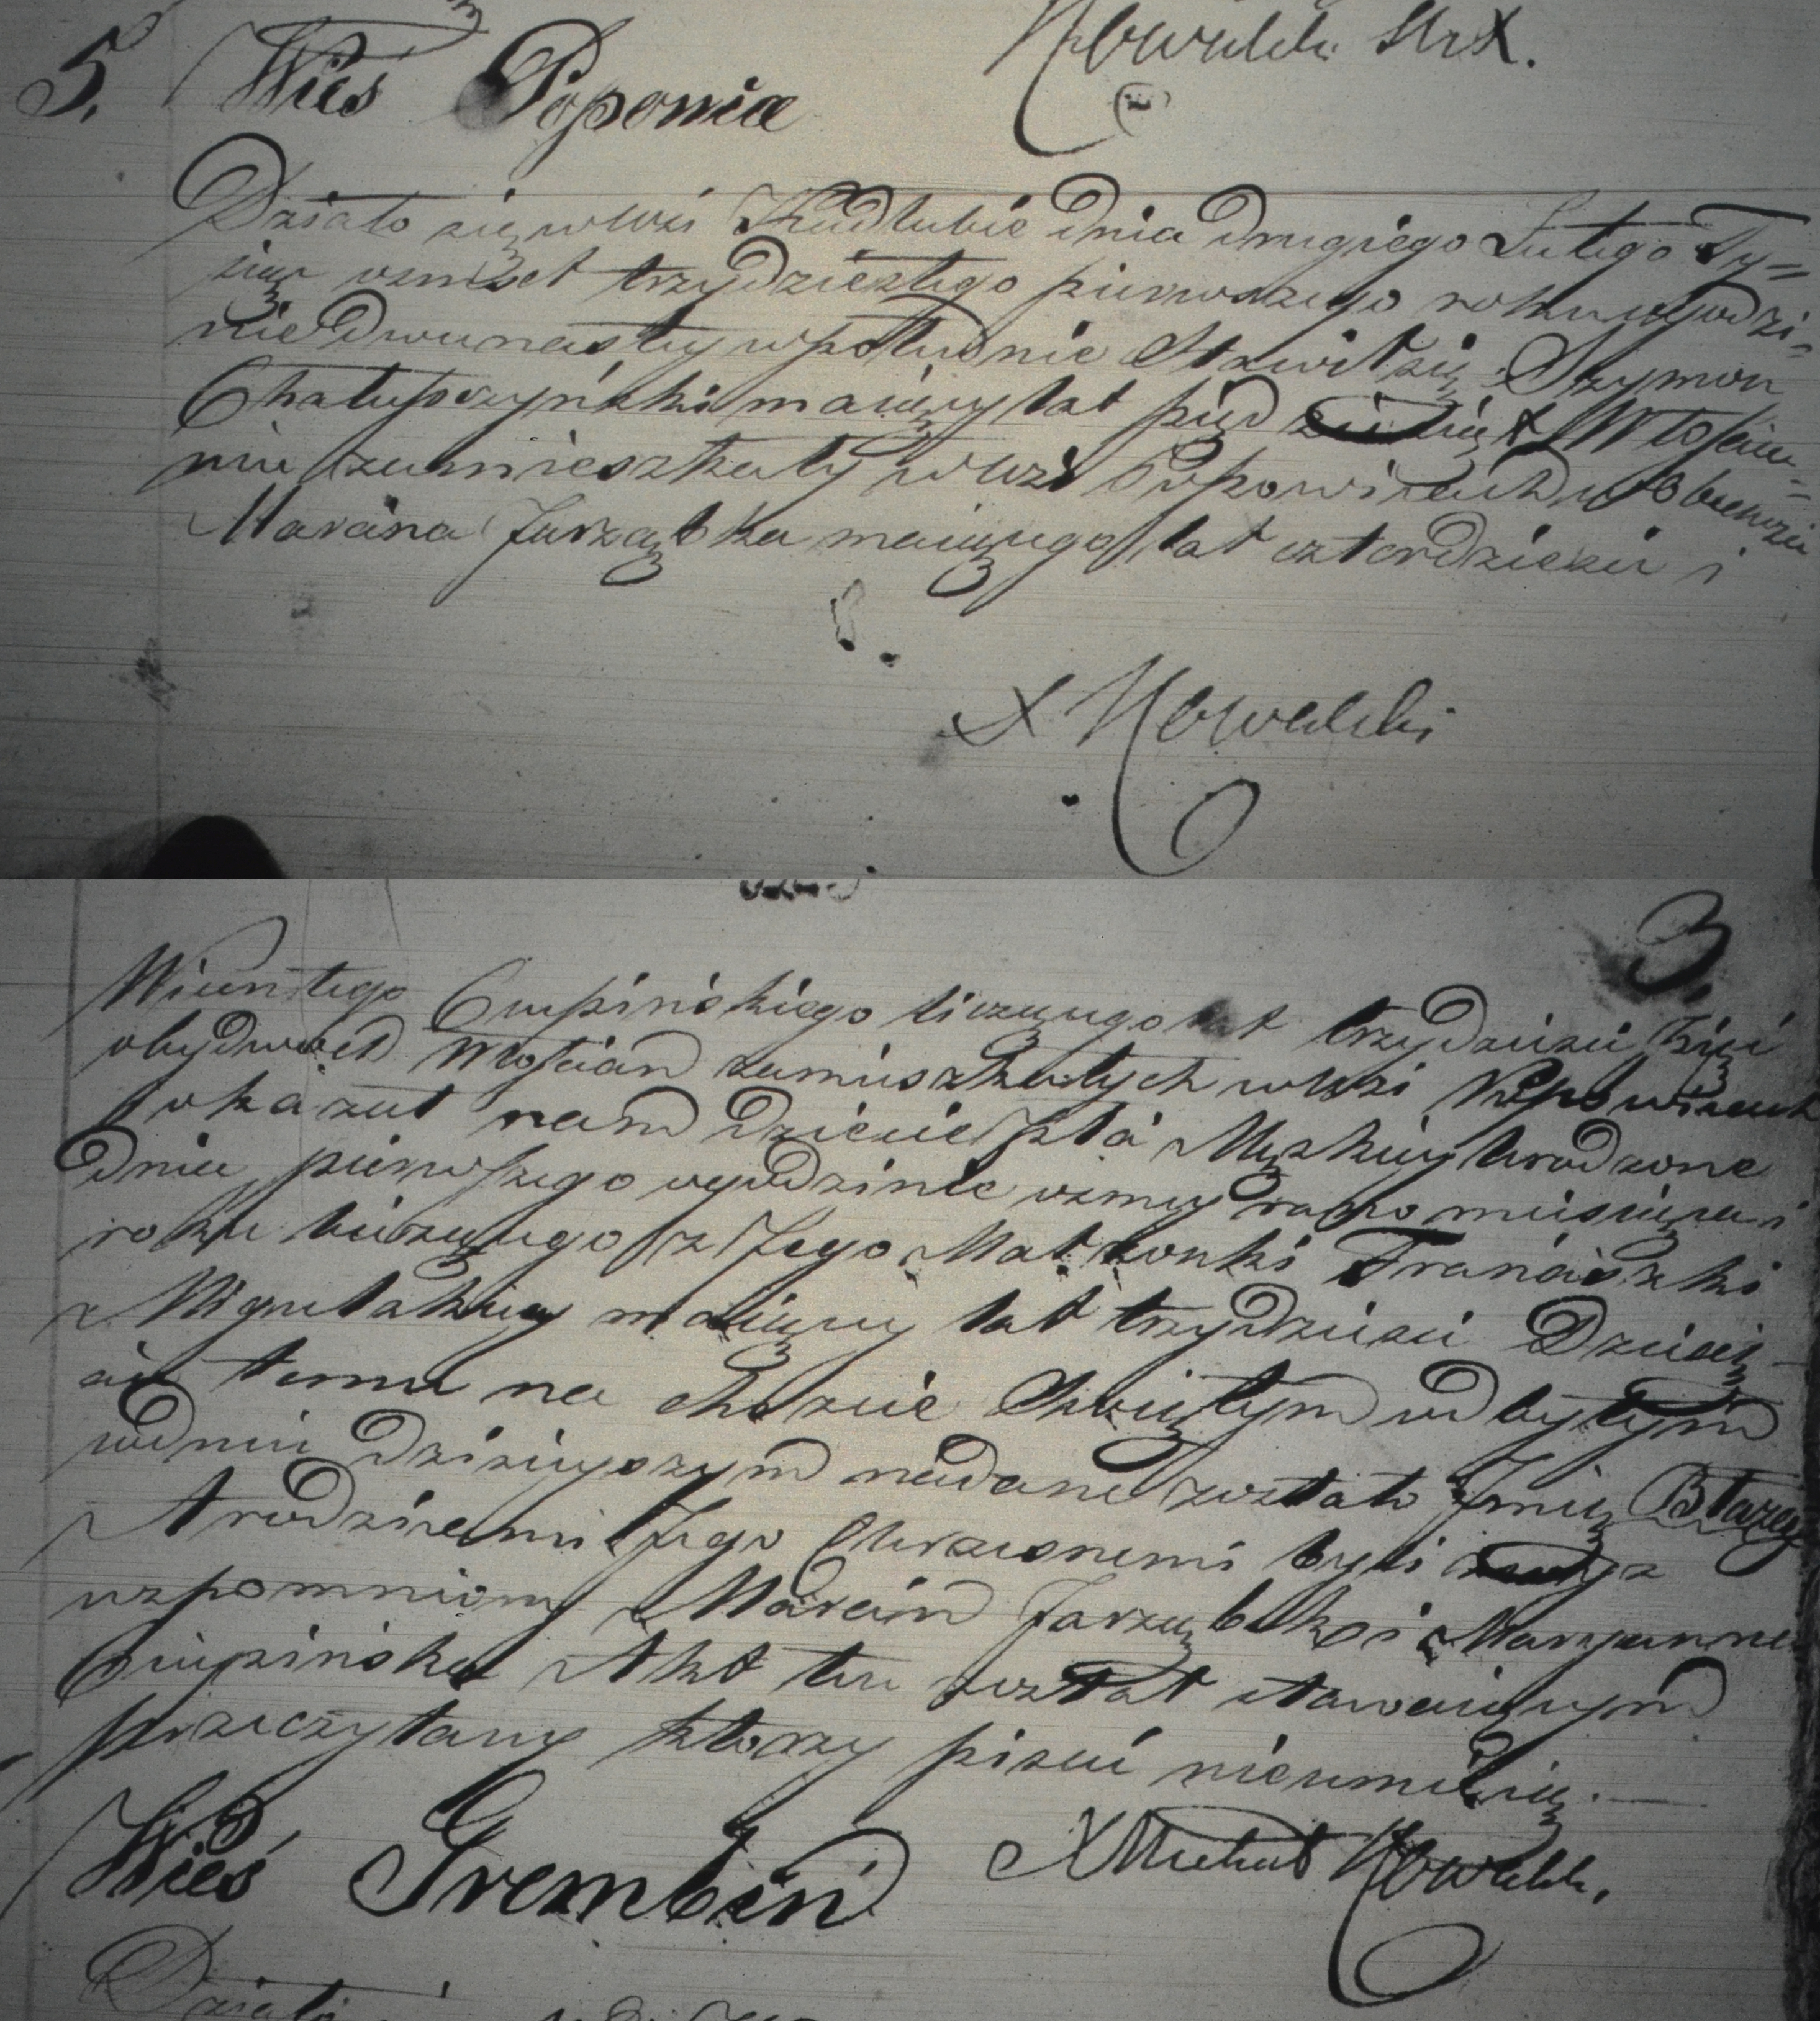 Kowalski
5. Wieś Popowice
Działo się wWsi Kadłubie dnia drugiego Lutego Ty=
siąc osmset trzydziestego pierwszego roku ogodzi=
nie Dwunasty wpołudnie Stawił się Szymon
Chałupczyński maiący lat Włościa=
nin zamieszkały wWsi Popowicach wObecności
Marcina Jarząbka maiącego lat czterdzieści i
X Kowalski
3.
Wicentego Ciupińskiego liczącego lat trzydzieści
obydwoch Włościan zamieszkałych wWsi Popowicach
okazał nam Dziecie płci Męzkiey Urodzone
dnia pierwszego ogodzinie osmey rano miesiąca i
roku bieżącego z Jego Małżonki Franciszki
z maiący lat trzydzieści Dziecię=
ciu temu na chrzcie Świętym odbytym
wdniu dzisieyszym nadane zostało Jmię Błażey
A rodzicami Jego Chrzesnemi byli
wspomniony Marcin Jarząbek i Maryanna
Ciupińska Akt ten został stawaiącym
przeczytany ktorzy pisać nieumieią.
Wieś Grembin X Michał Kowalski.
Działo